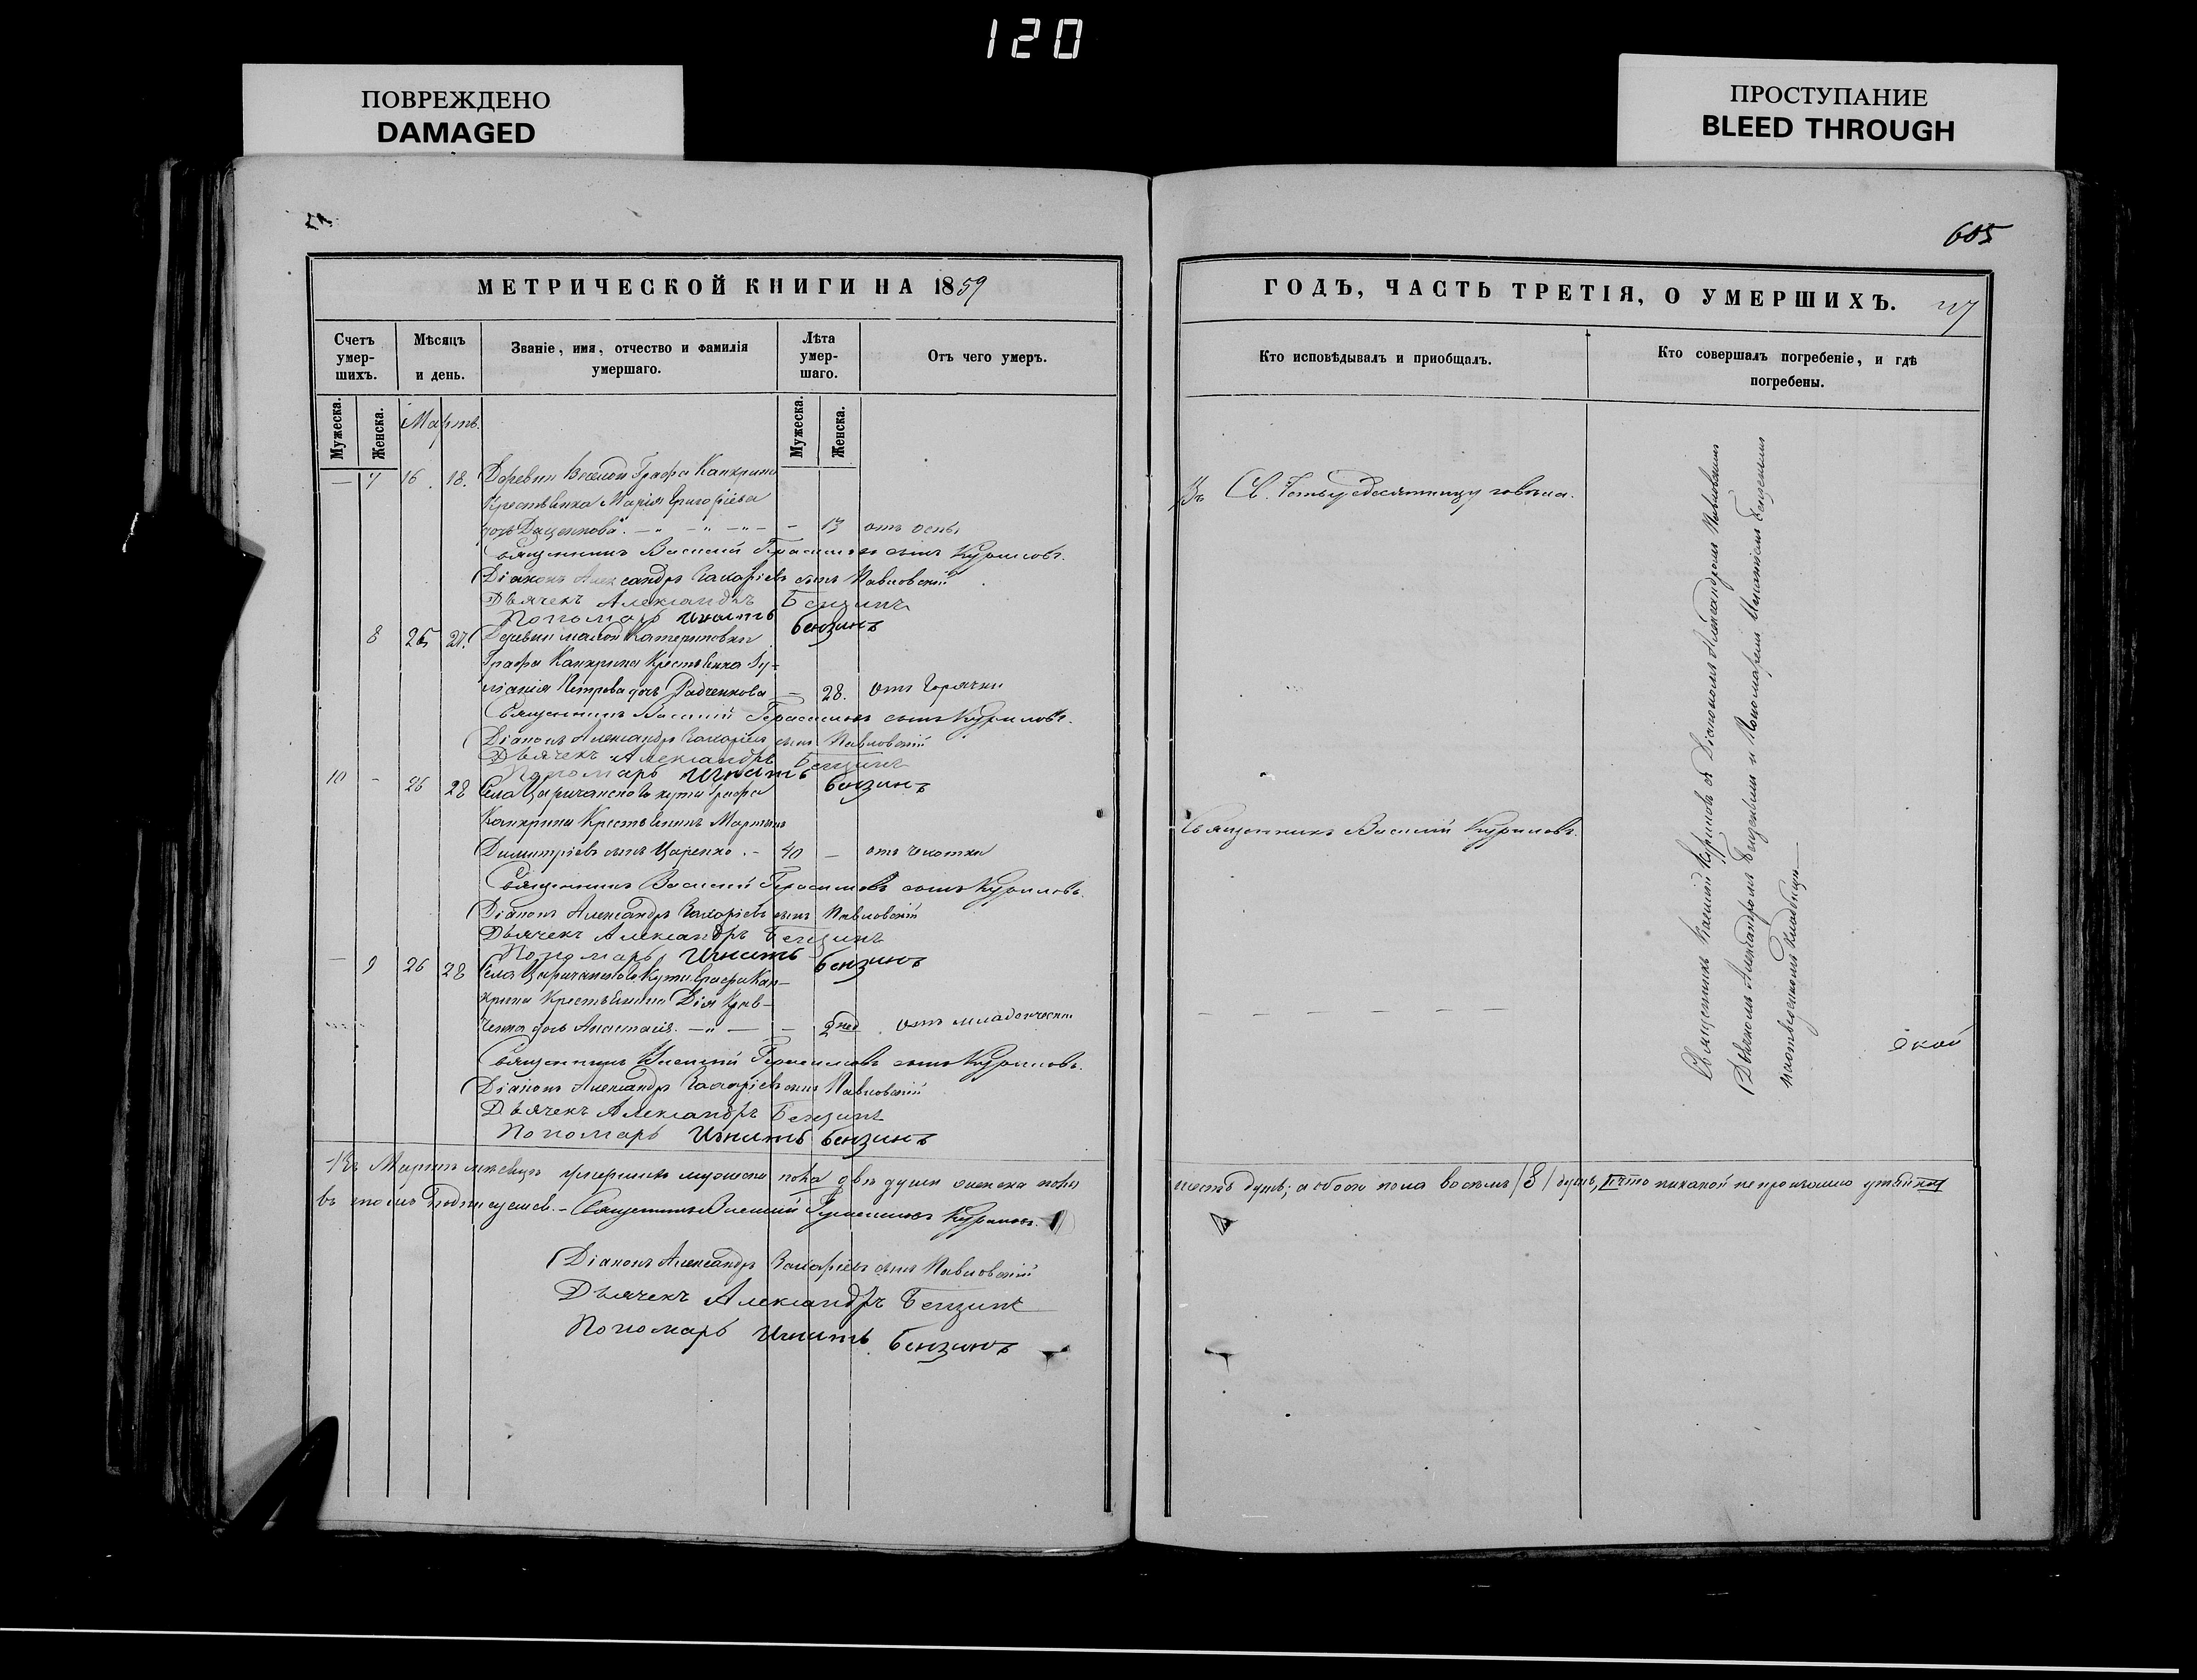 120
ПОВРЕЖДЕНО
DAMAGED
ПРОСТУПАНИЕ
BLEED THROUGH
605
МЕТРИЧЕСКОЙ КНИГИ НА 1859
Счетъ умер-шихъ.
Мѣсяцъ и день.
Званіе, имя, отчество и фамилія умершаго.
Лѣта умер-шаго.
Отъ чего умеръ.
Мужеска.
Женска.
Мартъ.
Мужеска.
Женска.
— 7 16. 18. Деревни Веселой Графа Канкрина
Крестьянка Марія Григоріева
дочь Даценкова — 13 отъ оспы
Священникъ Василій Герасимовъ сынъ Куриловъ.
Діаконъ Александръ Захаріевъ сынъ Павловскій
Дьячекъ Александръ Бензинъ
Пономарь Игнатъ Бензинъ
8 25 27. Деревни малой Катериновки
Графа Канкрина Крестьянка Іу-
ліанія Петрова дочь Радченкова — 28. отъ горячки
Священникъ Василій Герасимовъ сынъ Куриловъ.
Діаконъ Александръ Захаріевъ сынъ Павловскій
Дьячекъ Александръ Бензинъ
Пономарь Игнатъ Бензинъ
10 - 26 28 Села Царичанскаго кута Графа
Канкрина Крестьянинъ Мартинъ
Димитріевъ сынъ Царенко. - 40 — отъ чахотки
Священникъ Василій Герасимовъ сынъ Куриловъ.
Діаконъ Александръ Захаріевъ сынъ Павловскій
Дьячекъ Александръ Бензинъ
Пономарь Игнатъ Бензинъ
— 9 26 28 Села Царичанскаго Кута Графа Кан-
крина Крестьянина Крав-
ченка дочь Анастасія. — 2 нед отъ младенческой
Священникъ Василій Герасимовъ сынъ Куриловъ.
Діаконъ Александръ Захаріевъ сынъ Павловскій
Дьячекъ Александръ Бензинъ
Пономарь Игнатъ Бензинъ
Въ Мартѣ мѣсяцѣ умершихъ мужеска пола двѣ души женска пола
въ томъ подписуемся. — Священникъ Василій Герасимовъ Куриловъ.
Діаконъ Александръ Захаріевъ сынъ Павловскій
Дьячекъ Александръ Бензинъ
Пономарь Игнатъ Бензинъ
ГОДЪ, ЧАСТЬ ТРЕТІЯ, О УМЕРШИХЪ.
Кто исповѣдывалъ и пріобщалъ.
Кто совершалъ погребеніе, и гдѣ погребены.
Въ Св. Четыредесятницу говѣла.
Священникъ Василій Куриловъ.
— — — — —
Священникъ Василій Куриловъ съ Діакономъ Александромъ Павловскимъ
Дьячкомъ Александромъ Бензинымъ и Пономаремъ Игнатіемъ Бензинымъ
на отведенномъ Кладбищѣ
шесть душъ; а обоего пола восемь /8/ душъ, и что никакой не произошло утайки